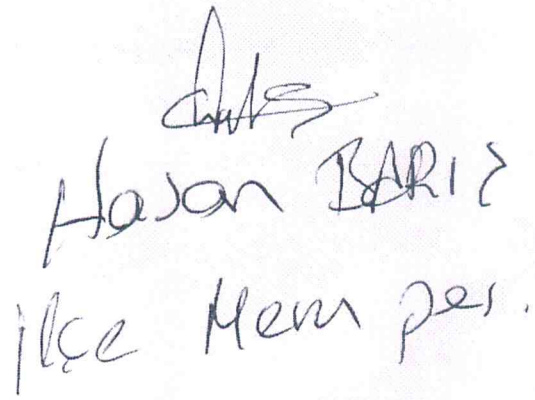 Hasan BARIŞ
ilçe Mem per.